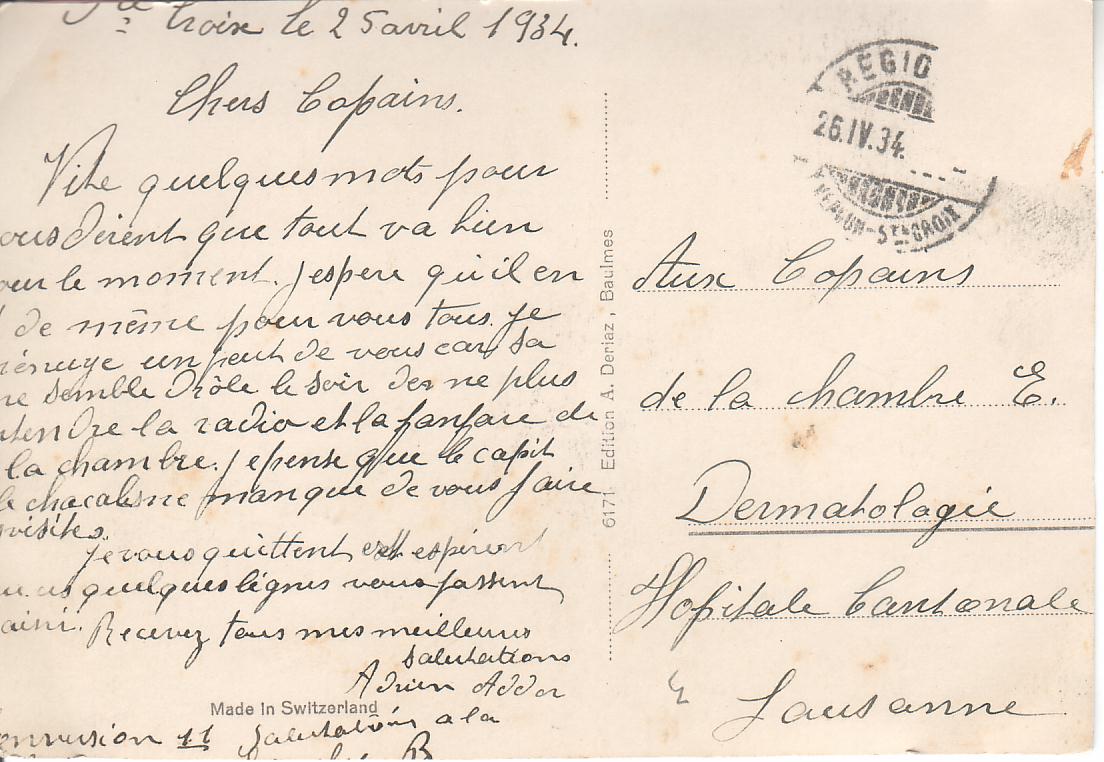 Ste Croix le 25 avril 1934.
Chers Copains.
Vite quelques mots pour
ous dirent que tout va bien
our le moment. J espere qu'il en
de même pour vous tous. Je
énuye un peut de vous car sa
me semble drôle le soir des ne plus
ntendre la radio et la fanfare de
la chambre. J epense que le capit
le manque de vous faire
visites.
Je vous quittent et espérent
quelques lignes vous fassent
Recevez tous mes meilleures
salutations
Adrien Addor
Made in Switzerland
11 Salutation a la
B
6171 Edition A. Deriaz, Baulmes
REGIO
26.IV.34.
YVERDON-STE CROIX
Aux Copains
de la chambre E.
Dermatologie
Hopitale Cantonale
Lausanne